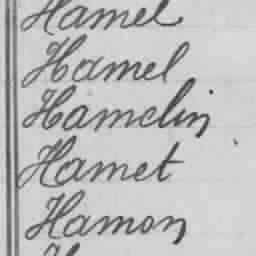 Hamel
Hamel
Hamelin
Hamet
Hamon